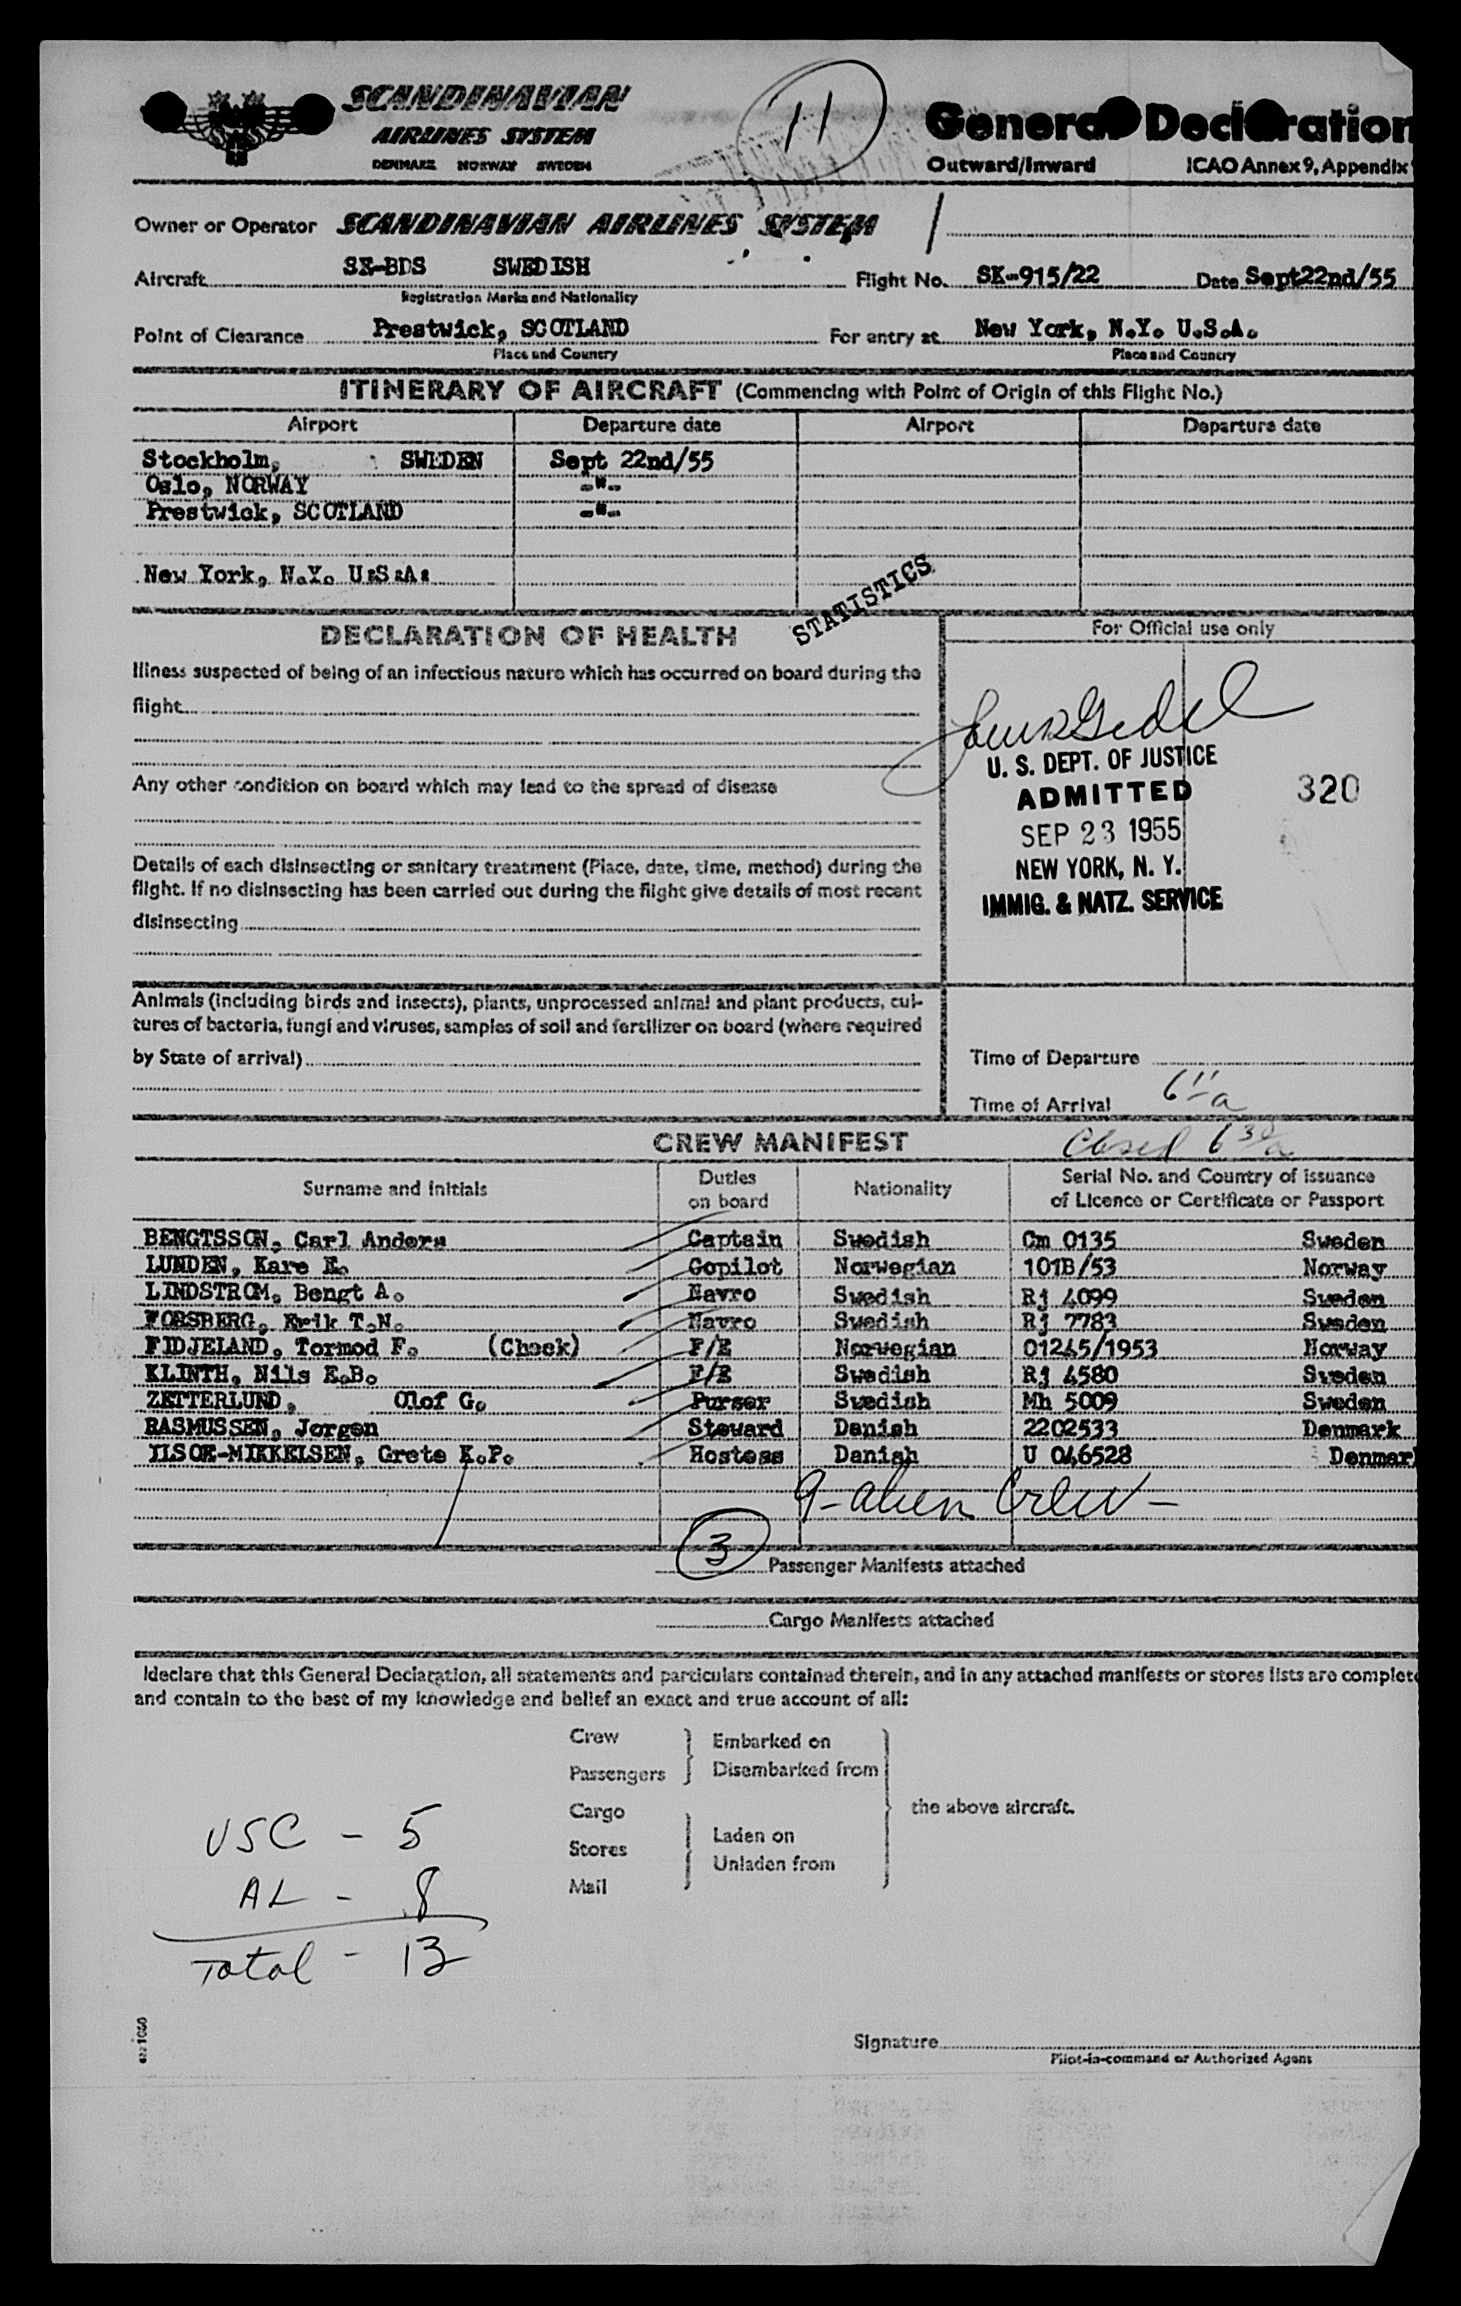 SCANDINAVIAN
AIRLINES SYSTEM
DENMARK NORWAY SWEDEN
11
General Declaration
Outward/Inward ICAO Annex 9, Appendix
Owner or Operator SCANDINAVIAN AIRLINES SYSTEM
Aircraft SE-BDS SWEDISH Flight No. SK-915/22 Date Sept22nd/55
Registration Marks and Nationality
Point of Clearance Prestwick, SCOTLAND For entry at New York, N.Y. U.S.A.
Place and Country Place and Country
ITINERARY OF AIRCRAFT (Commencing with Point of Origin of this Flight No.)
Airport Departure date Airport Departure date
Stockholm, SWEDEN Sept 22nd/55
Oslo, NORWAY -"-
Prestwick, SCOTLAND -"-
New York, N.Y. U:S:A:
STATISTICS
DECLARATION OF HEALTH
For Official use only
Illness suspected of being of an infectious nature which has occurred on board during the
flight
Any other condition on board which may lead to the spread of disease
Details of each disinsecting or sanitary treatment (Place, date, time, method) during the
flight. If no disinsecting has been carried out during the flight give details of most recent
disinsecting
U. S. DEPT. OF JUSTICE
ADMITTED 320
SEP 23 1955
NEW YORK, N. Y.
IMMIG. & NATZ. SERVICE
Animals (including birds and insects), plants, unprocessed animal and plant products, cul-
tures of bacteria, fungi and viruses, samples of soil and fertilizer on board (where required
by State of arrival)
Time of Departure
Time of Arrival 6 11 a
CREW MANIFEST
Closed 6 30 a
Surname and initials Duties on board Nationality Serial No. and Country of issuance of Licence or Certificate or Passport
BENGTSSON, Carl Anders Captain Swedish Cm 0135 Sweden
LUNDEN, Kare E. Copilot Norwegian 101B/53 Norway
LINDSTROM, Bengt A. Navro Swedish Rj 4099 Sweden
FORSBERG, Erik T.N. Navro Swedish Rj 7783 Sweden
FIDJELAND, Tormod F. (Check) F/E Norwegian 01245/1953 Norway
KLINTH, Nils E.B. F/E Swedish Rj 4580 Sweden
ZETTERLUND, Olof G. Purser Swedish Mh 5009 Sweden
RASMUSSEN, Jorgen Steward Danish 2202533 Denmark
ILSOE-MIKKELSEN, Grete K.P. Hostess Danish U 046528 Denmar
9 - alien Crew -
3 Passenger Manifests attached
Cargo Manifests attached
I declare that this General Declaration, all statements and particulars contained therein, and in any attached manifests or stores lists are complete
and contain to the best of my knowledge and belief an exact and true account of all:
Crew
Passengers
Embarked on
Disembarked from
Cargo
Stores
Mail
Laden on
Unladen from
the above aircraft.
USC - 5
AL - 8
Total - 13
Signature
Pilot-in-command or Authorized Agent